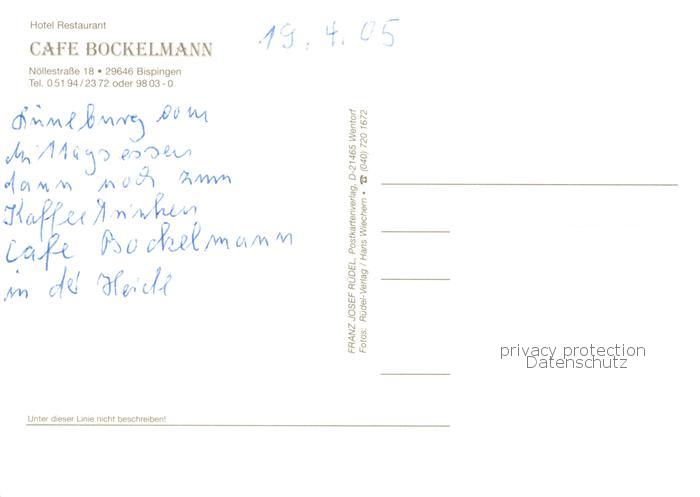 Hotel Restaurant
CAFE BOCKELMANN
Nöllestraße 18 • 29646 Bispingen
Tel. 0 51 94 / 23 72 oder 98 03 - 0
19. 4. 05
Lüneburg vom
Mittagessen
dann noch zum
Kaffee trinken
Cafe Bockelmann
in der Heide
FRANZ JOSEF RÜDEL, Postkartenverlag, D-21465 Wentorf
Fotos: Rüdel-Verlag / Hans Wiechern • ☎ (040) 720 1672
privacy protection
Datenschutz
Unter dieser Linie nicht beschreiben!